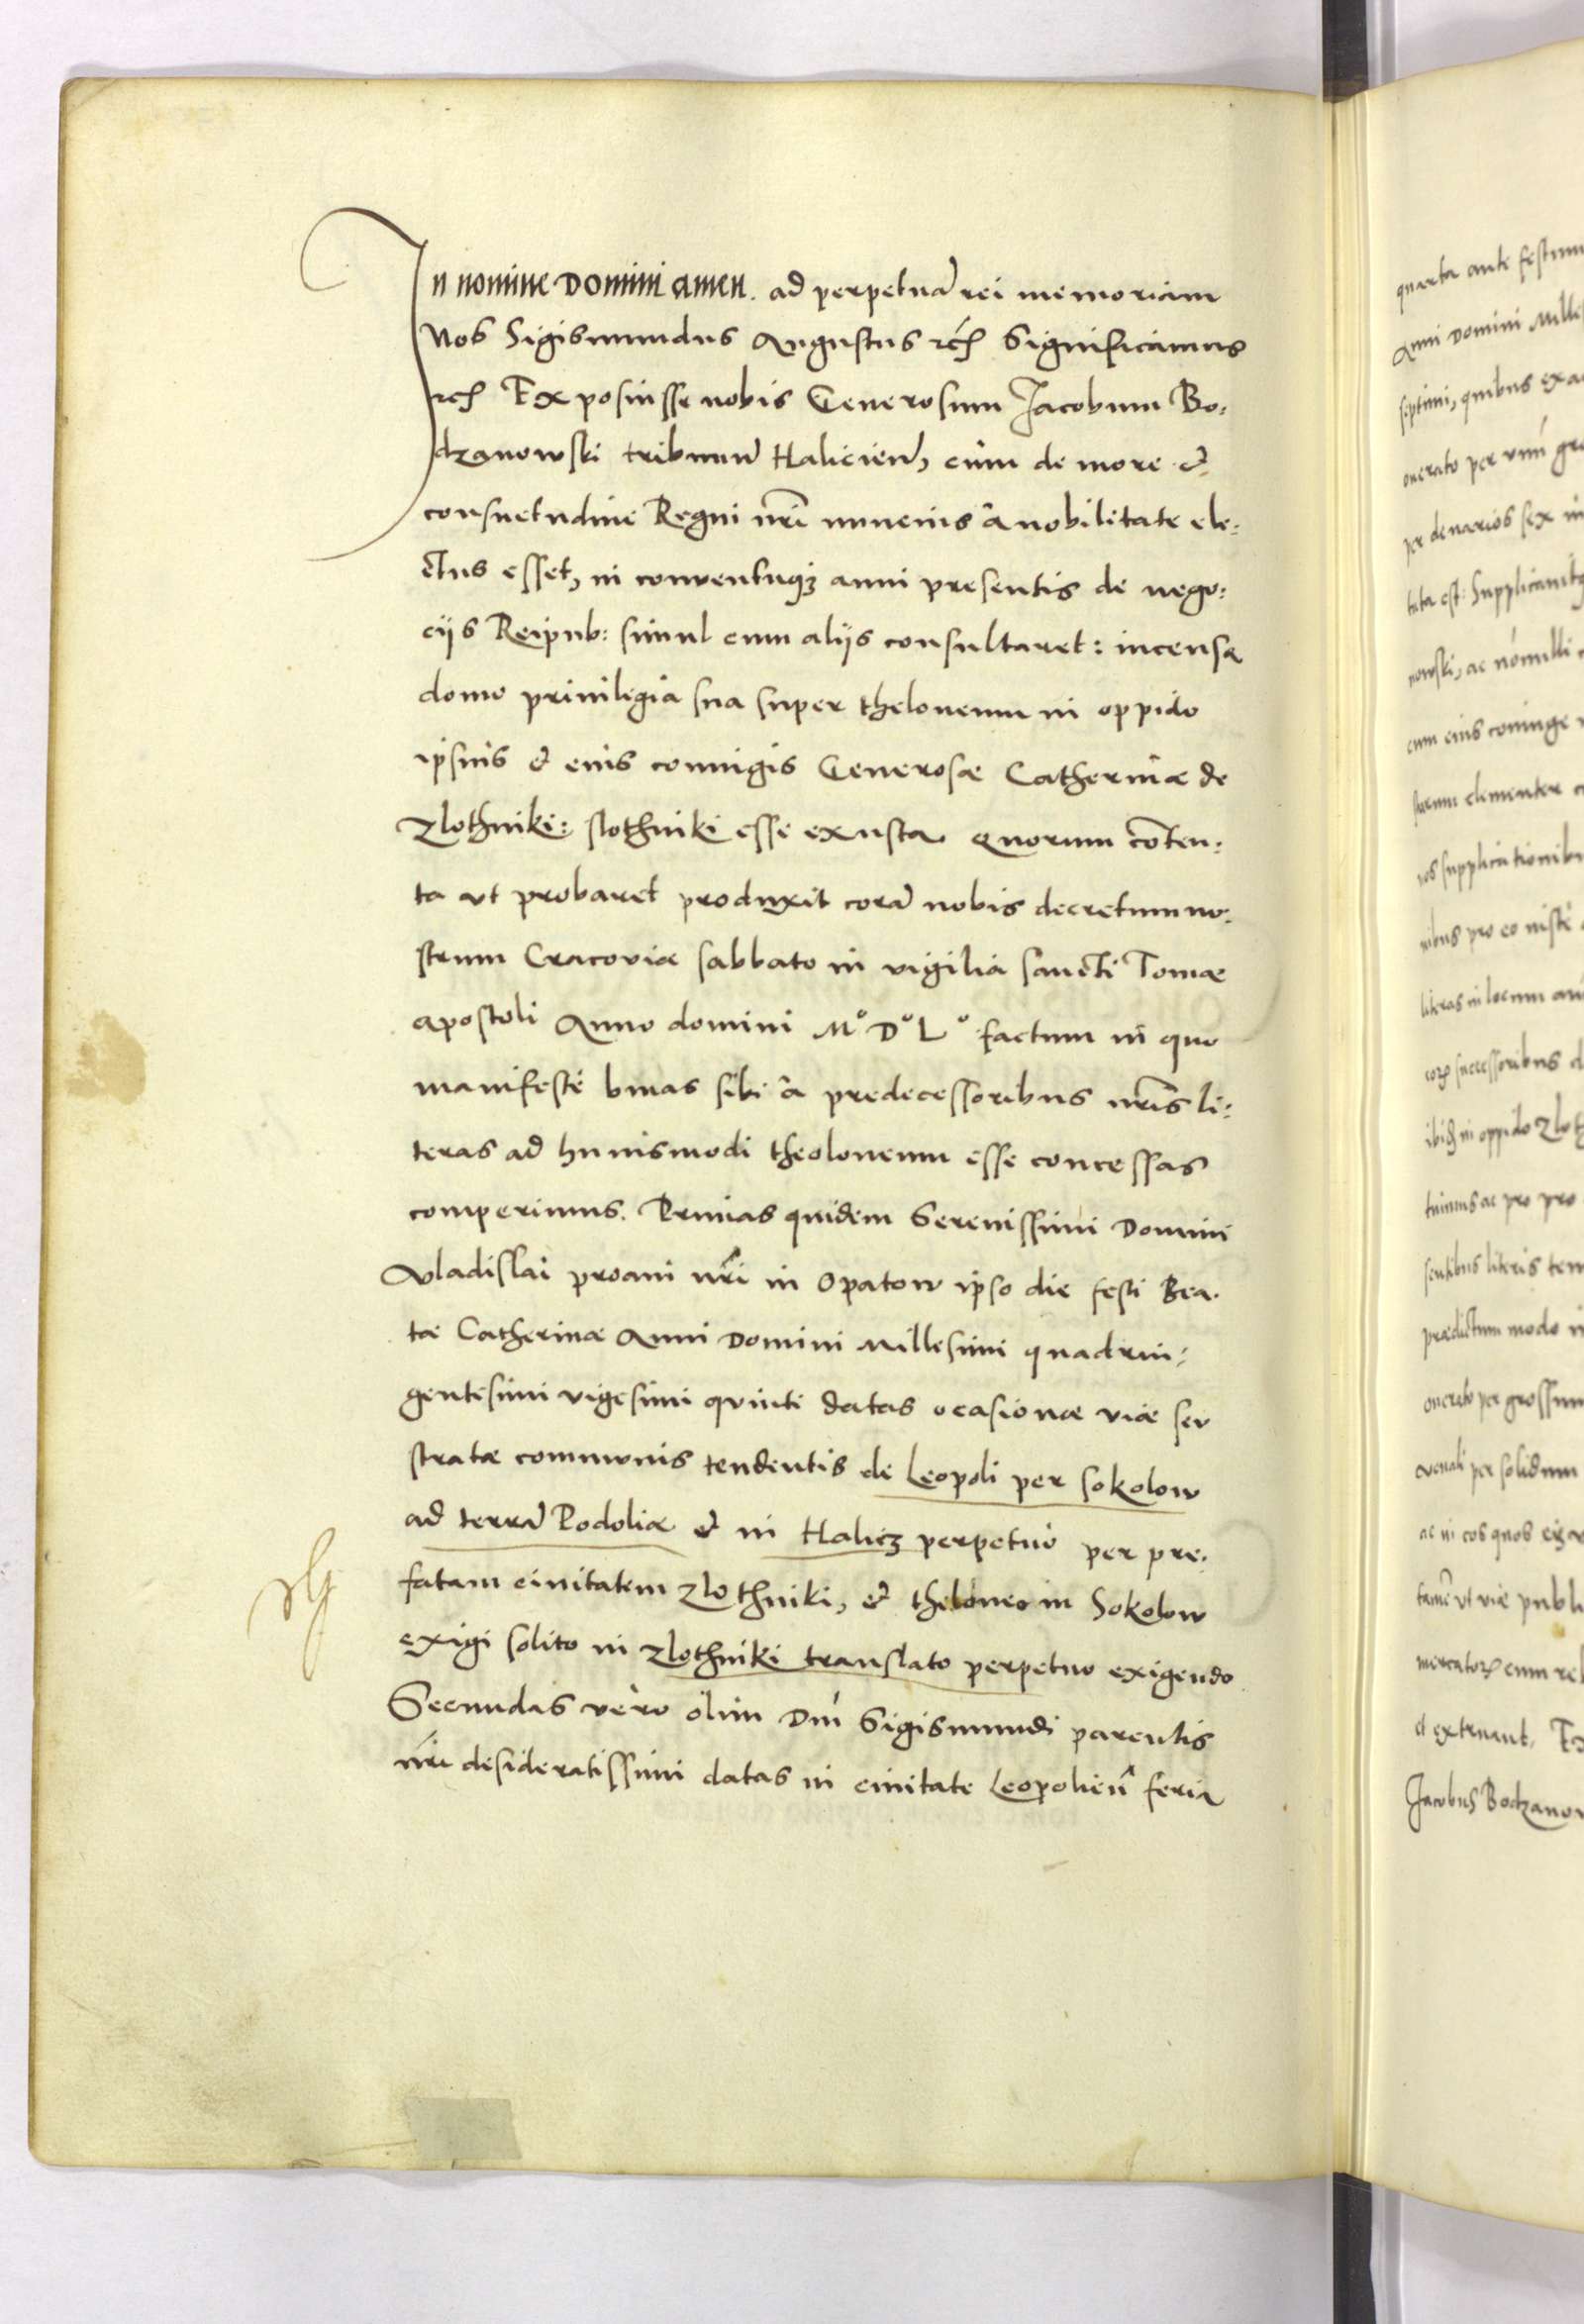 In nomine Domini amen. ad perpetuã rei memoriam
Nos Sigismundus Augustus rcȷ Significamus
rcȷ Exposuisse nobis Generosum Jacobum Bo:
dzanowski tribunũ Haliciẽn, cum de more et
consuetudine Regni nr̃i nuncius â nobilitate ele:
ctus esset, in conventuqȝ anni presentis de nego:
ciis Reipub: simul cum aliis consultaret: incensa
domo priuiligia sua super thelonenm in oppido
ipsius et eius coniugis Generosae Catherinae de
Zlothniki: slothniki esse exusta. Quorum cõten:
ta vt probaret produxit corã nobis decretum no:
strum Cracoviae sabbato in vigilia sancti Tomae
apostoli Anno domini Mº Dº Lº factum in quo
manifestè binas sibi â predecessoribus nr̃is li:
teras ad huiusmodi theoloneum esse concessas
comperimus. Primas quidem Serenissimi Domini
Vladislai proaui nr̃i in Opatow ipso die festi Bea:
tae Catherinae Anni Domini Millesimi quadrin:
gentesimi vigesimi quinti datas ocasionae viae seu
stratae communis tendentis de Leopoli per Sokolow
ad terrã Podoliae et in Halicz perpetuò per pre:
fatam ciuitatem Zlothniki, et theloneo in Sokolow
exigi solito in Zlothniki translato perpetuo exigendo
Secundas vero olim Dnĩ Sigismundi parentis
nr̃i desideratissimi datas in ciuitate Leopolieñ feria
quarta ante festum
Anni Domini Mille
septimi, quibus exa
onerato per vnũ gro
per denarios sex in
tata est: Supplicauitq
nowski, ac nõnulli
cum eius coniuge
suorum clementer
nos supplicationibu
nibus pro eo
literas in locum
successoribus d
ibidẽ in oppido Zloth
tuimus ac pro pro
sentibus literis ten
praedictum modo i
onerato per grossum
venali per solidum
ac in eos quos exa
tamẽ vt viae publi
mercatorȝ cum re
et extruant. Ex
Jacobus Bodzano